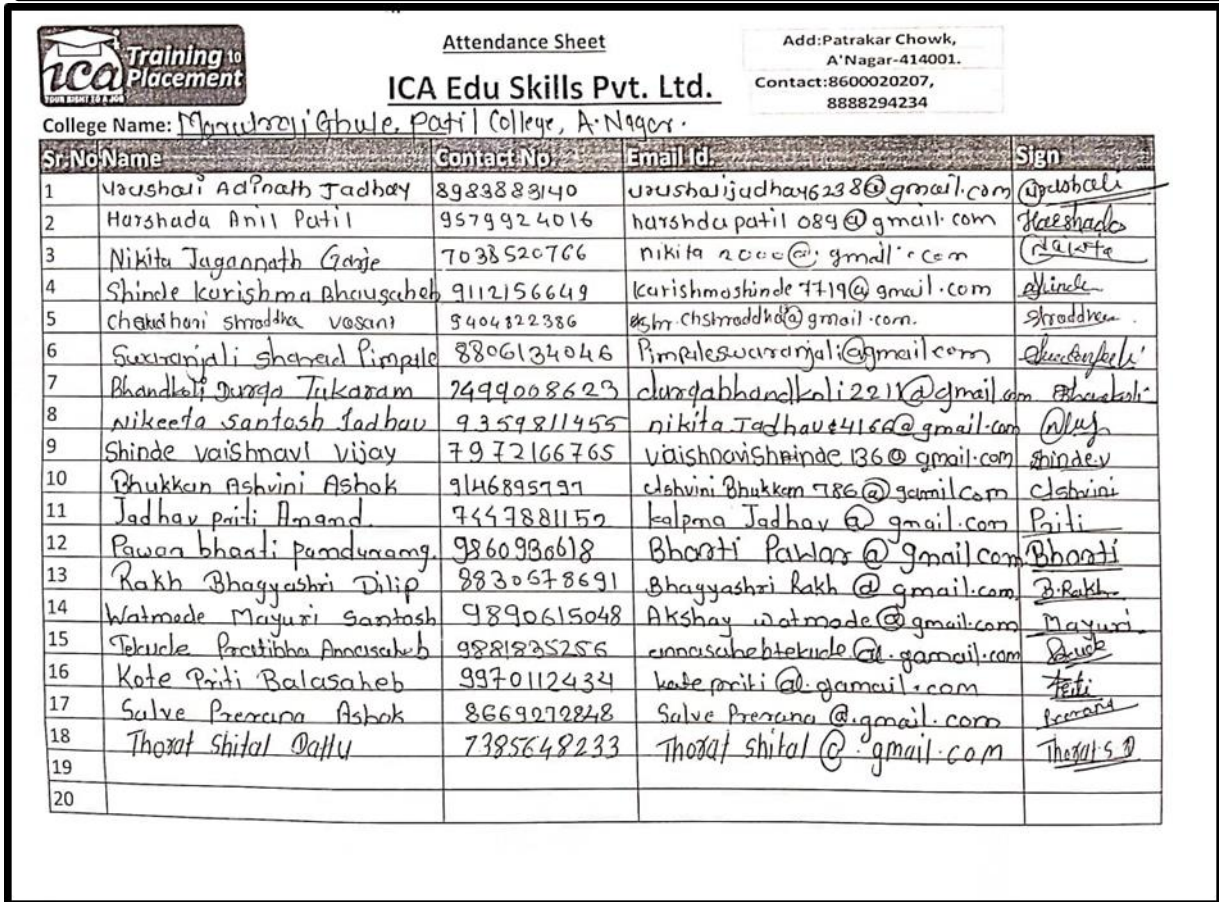 Training to
ica Placement
YOUR RIGHT TO A JOB
Attendance Sheet
ICA Edu Skills Pvt. Ltd.
Add:Patrakar Chowk,
A'Nagar-414001.
Contact:8600020207,
8888294234
College Name: Ghule Patil College, A. Nagar.
Sr.No Name Contact No. Email Id. Sign
1 Adinath Jadhav 8983883140
2 Harshada Anil Patil 9579924016 harshdapatil089@gmail.com Harshada
3 Nikita Jagannath Garje 7038520766
4 Shinde Karishma Bhausaheb 9112156649 karishmashinde7719@gmail.com Shinde
5 Shraddha Vasant 9404822386 Shraddha
6 Swaranjali Sharad Pimpale 8806134046 Pimpaleswaranjali@gmail.com
7 Bhandkoli Durga Tukaram 7499008623 durgabhandkoli2211@gmail.com Bhandkoli
8 Nikeeta Santosh Jadhav 9359811455
9 Shinde Vaishnavi Vijay 7972166765 Shinde.V
10 Bhukkan Ashvini Ashok 9146895797 Ashvini Bhukkan 786@gamil.com Ashvini
11 Jadhav Priti Anand. 7447881152 kalpna Jadhav @ gmail.com Priti
12 Pawar bharti pandurang. 9860930618 Bharti Pawar @ gmail.com Bharti
13 Rakh Bhagyashri Dilip 8830578691 Bhagyashri Rakh @ gmail.com B.Rakh
14 Watmode Mayuri Santosh 9890615048 Akshay watmode@gmail.com Mayuri
15 Pratibha Annasaheb 9881835256
16 Kote Priti Balasaheb 9970112434 kote priti @.gamail.com Priti
17 Salve Prerana Ashok 8669272848 Salve Prerana @.gmail.com Prerana
18 Thorat Shital Dattu 7385648233 Thorat shital @.gmail.com Thorat S D
19
20